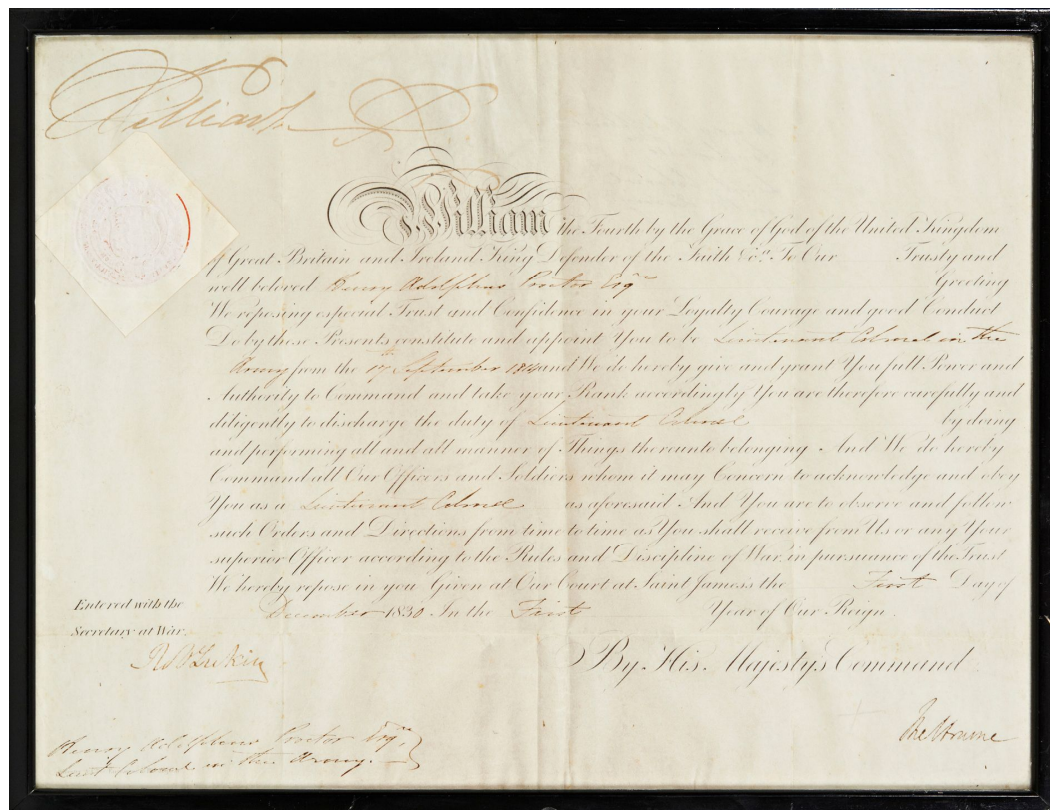 William R
William the Fourth by the Grace of God of the United Kingdom
of Great Britain and Ireland King Defender of the Faith &c.a To Our Trusty and
well beloved Henry Adolphus Proctor Esqre Greeting
We reposing especial Trust and Confidence in your Loyalty Courage and good Conduct
Do by these Presents constitute and appoint You to be Lieutenant Colonel in the
Army from the 17th September 1814 and We do hereby give and grant You full Power and
Authority to Command and take your Rank accordingly You are therefore carefully and
diligently to discharge the duty of Lieutenant Colonel by doing
and performing all and all manner of Things thereunto belonging And We do hereby
Command all Our Officers and Soldiers whom it may Concern to acknowledge and obey
You as a Lieutenant Colonel as aforesaid And You are to observe and follow
such Orders and Directions from time to time as You shall receive from Us or any Your
superior Officer according to the Rules and Discipline of War in pursuance of the Trust
We hereby repose in you Given at Our Court at Saint James's the First Day of
December 1830 In the First Year of Our Reign.
Entered with the
Secretary at War.
R B Lukin
By His Majesty's Command
Melbourne
Henry Adolphus Proctor Esqre,
Lieut Colonel in the Army.